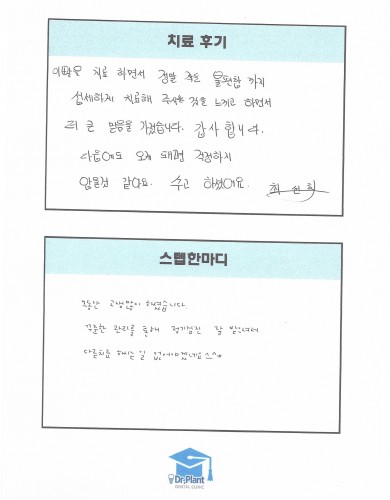 치료 후기
이빨을 치료 하면서 정말 작은 불편함 까지
섬세하게 치료해 주셔서 감을 느끼고 하면서
더 큰 믿음을 가졌습니다. 감사 합니다.
다음에도 오게 돼면 걱정하지
않을것 같아요. 수고 하셨어요.
스텝한마디
오동안 고생많이 하셨습니다
꾸준한 관리를 통해 정기검진 잘 받으셔서
다른치료 하는 일 없어야겠네요^^
Dr.Plant
DENTAL CLINIC